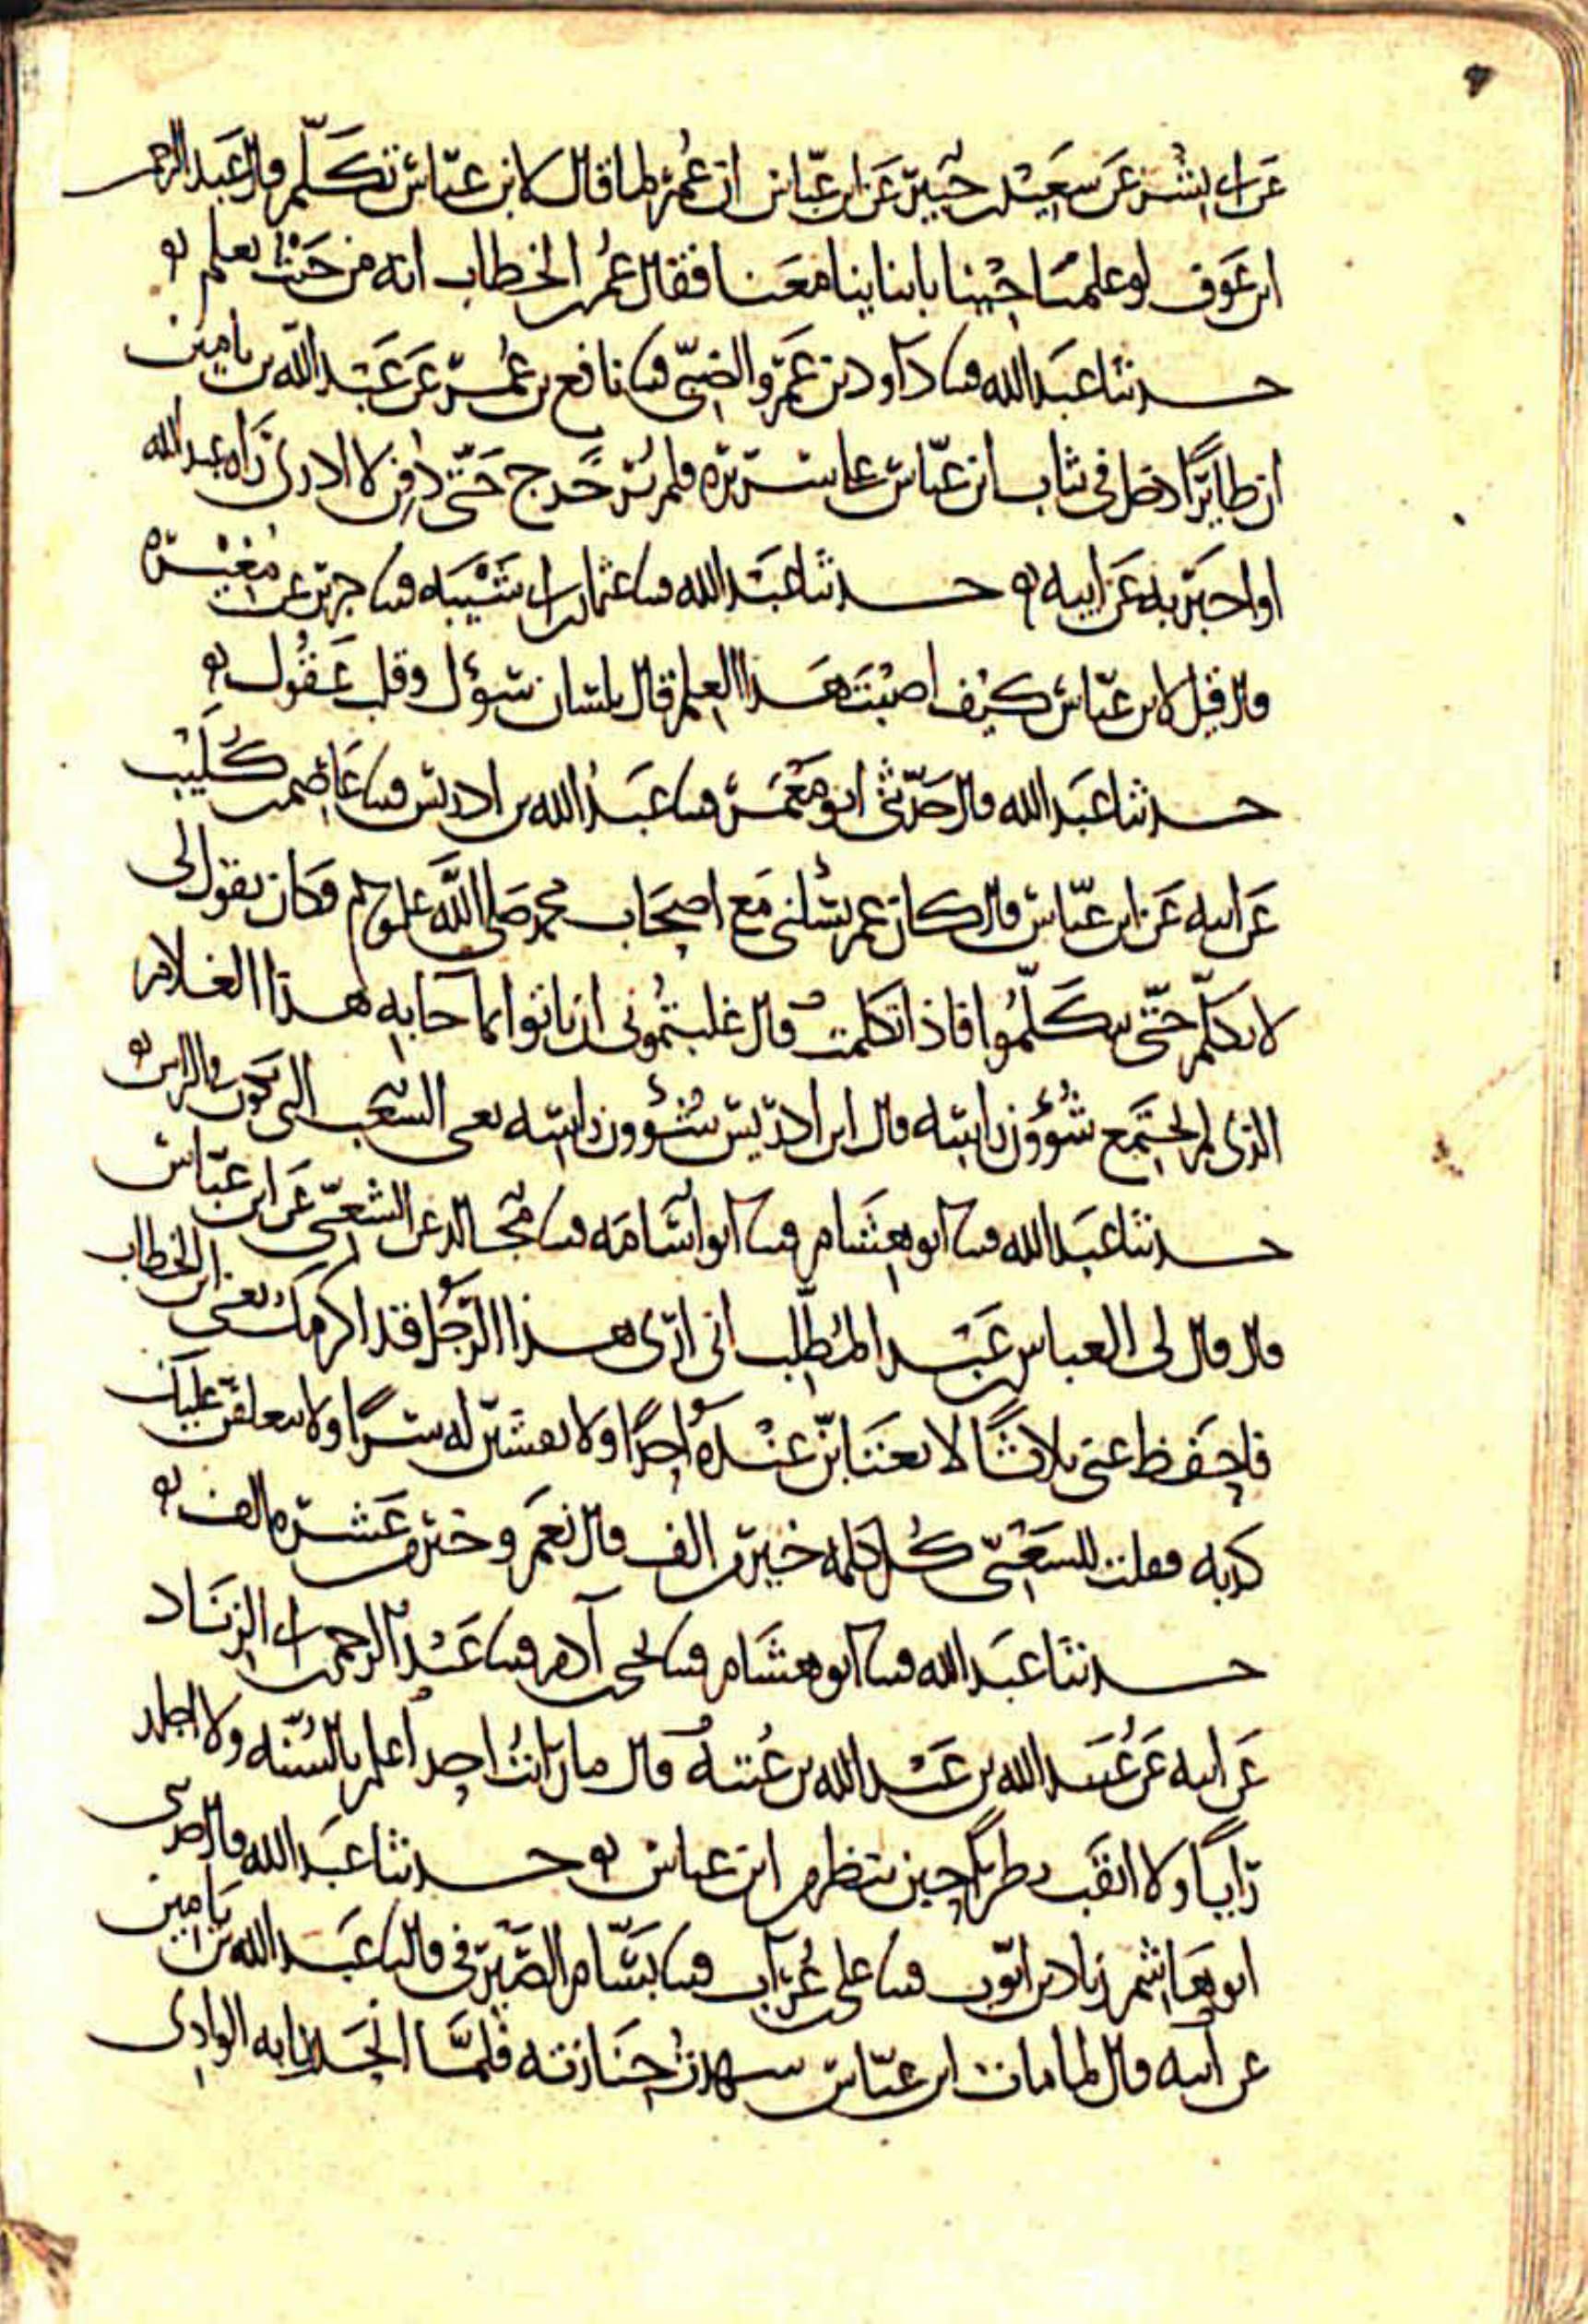 عن ابي بشر عن سعيد بن جبير عن ابن عباس ان عمر لما قال لابن عباس تكلم قال عبد الرحمن
ابن عوف لو علمنا جينا بابناينا معنا فقال عمر بن الخطاب انه من حيث تعلم
حدثنا عبد الله قثنا داود بن عمرو الضبي قثنا نافع بن عمر عن عبد الله بن يامين
ان طايرا دخل في ثياب ابن عباس على سريره فلم ير خرج حتى دفن لا ادري راه عبد الله
او اخبر به عن ابيه حدثنا عبد الله قثنا عثمان بن ابي شيبه قثنا جرير عن مغيره
قال قيل لابن عباس كيف اصبت هذا العلم قال بلسان سؤل وقلب عقول
حدثنا عبد الله قال حدثني ابو معمر قثنا عبد الله بن ادريس قثنا عاصم بن كليب
عن ابيه عن ابن عباس قال كان عمر يسئلني مع اصحاب محمد صلى الله عليه وسلم وكان يقول لي
لا تكلم حتى يتكلموا فاذا تكلمت قال غلبتموني ان تاتوا بما جا به هذا الغلام
الذي لم تجتمع شؤون راسه قال ابن ادريس شؤون راسه يعني الشعب التي تكون في الراس
حدثنا عبد الله قثنا ابو هشام قثنا ابو اسامه قثنا مجالد عن الشعبي عن ابن عباس
قال قال لي العباس بن عبد المطلب اني ارى هذا الرجل قد اكرمك يعني ابن الخطاب
فاحفظ عني ثلاثا لا تغتابن عنده احدا ولا تفشين له سرا ولا يتعلقن عليك
كذبه فقلت للشعبي كل كلمه خير من الف قال نعم وخير من عشره الف
حدثنا عبد الله قثنا ابو هشام قثنا يحيى بن آدم قثنا عبد الرحمن بن ابي الزناد
عن ابيه عن عبيد الله بن عبد الله بن عتبه قال ما رايت احدا اعلم بالسنه ولا اجلد
رايا ولا اثقب نظرا حين ينظر من ابن عباس حدثنا عبد الله قال حدثني
ابو هاشم زياد بن ايوب قثنا علي بن غراب قثنا بسام الصيرفي قال ثنا عبد الله بن يامين
عن ابيه قال لما مات ابن عباس شهدت جنازته فلما انحدرنا به الوادي